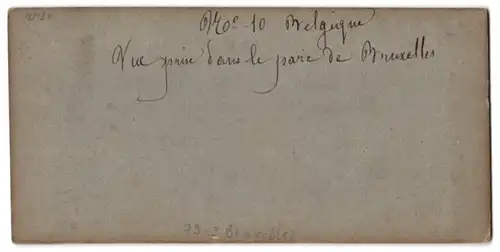 No 10 Belgique
Vue prise dans le parc de Bruxelles
79 Bruxelles